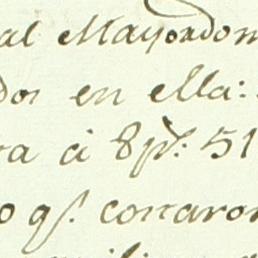 al Mayordom
dos en ella:
ra á 8 ps. 51
o qs. contaron